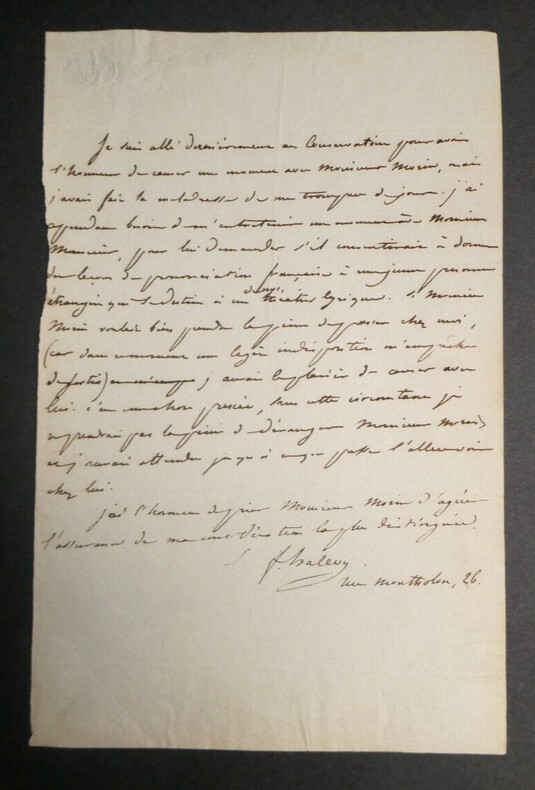 Je suis allé dernièrement au Conservatoire pour avoir
l'honneur de causer un moment avec Monsieur Morin, mais
j'avais fait la maladresse de me tromper de jour. j'ai
cependant besoin de m'entretenir un moment avec Monsieur
pour lui demander s'il consentirait à donner
des leçons de prononciation française à une jeune personne
étrangère qui se destine à un de nos théâtres lyriques. Si Monsieur
Morin voulait bien prendre la peine de passer chez moi,
(car dans ce moment une légère indisposition m'empêche
de sortir) j'aurais le plaisir de causer avec
lui. c'est une chose pressée, sans cette circonstance je
ne prendrais pas la peine de déranger Monsieur Morin,
et j'aurais attendu jusqu'à ce que je pusse l'aller voir
chez lui.
j'ai l'honneur de prier Monsieur Morin d'agréer
l'assurance de ma considération la plus distinguée.
f. halevy.
rue montholon, 26.